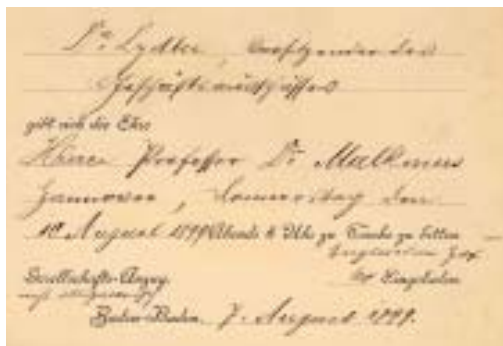 Dr. Lydtin, Vorsitzender des
Geschäftsausschusses
gibt sich die Ehre
Herrn Professor Dr. Malkmus
Hannover, Donnerstag den
10 August 1899 Abends 6 Uhr zu Tische zu bitten
Gesellschafts-Anzug.
Baden-Baden, 7. August 1899.